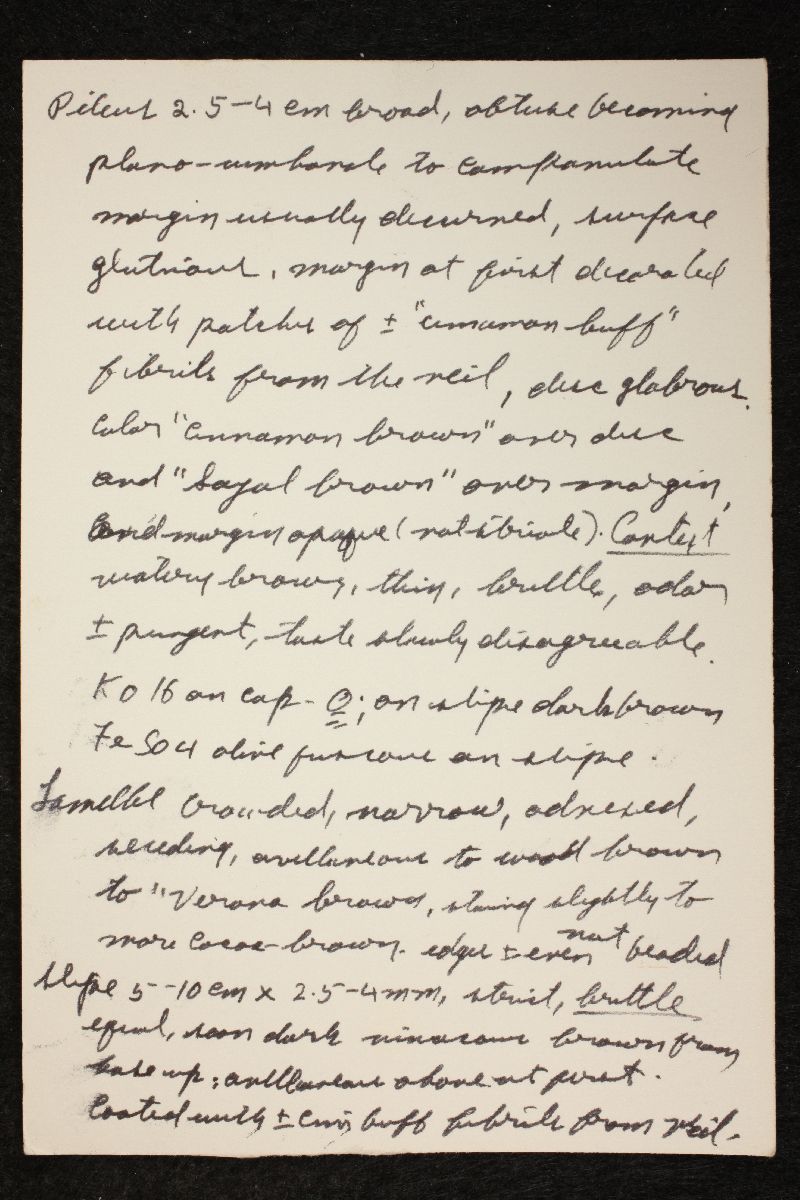 Pileus 2.5-4 cm broad, obtuse becoming
plano-umbonate to campanulate
margin usually decurved, surface
glutinous, margin at first decorated
with patches of ± "cinnamon buff"
fibrils from the veil, disc glabrous.
Color "cinnamon brown" over disc
and "Sayal brown" over margin,
and margin opaque (not striate). Context
watery brown, thin, brittle, odor
± pungent, taste slowly disagreeable.
KOH on cap - O; on stipe dark brown
FeSO4 olive fuscous on stipe.
Lamellae crowded, narrow, adnexed,
seceding, avellaneous to wood brown
to "Verona brown, staining slightly to
more cocoa-brown. edges ± even not beaded
Stipe 5-10 cm x 2.5-4 mm, strict, brittle
equal, soon dark vinaceous brown from
base up, avellaneous above at first.
Coated with ± cinn buff fibrils from veil.